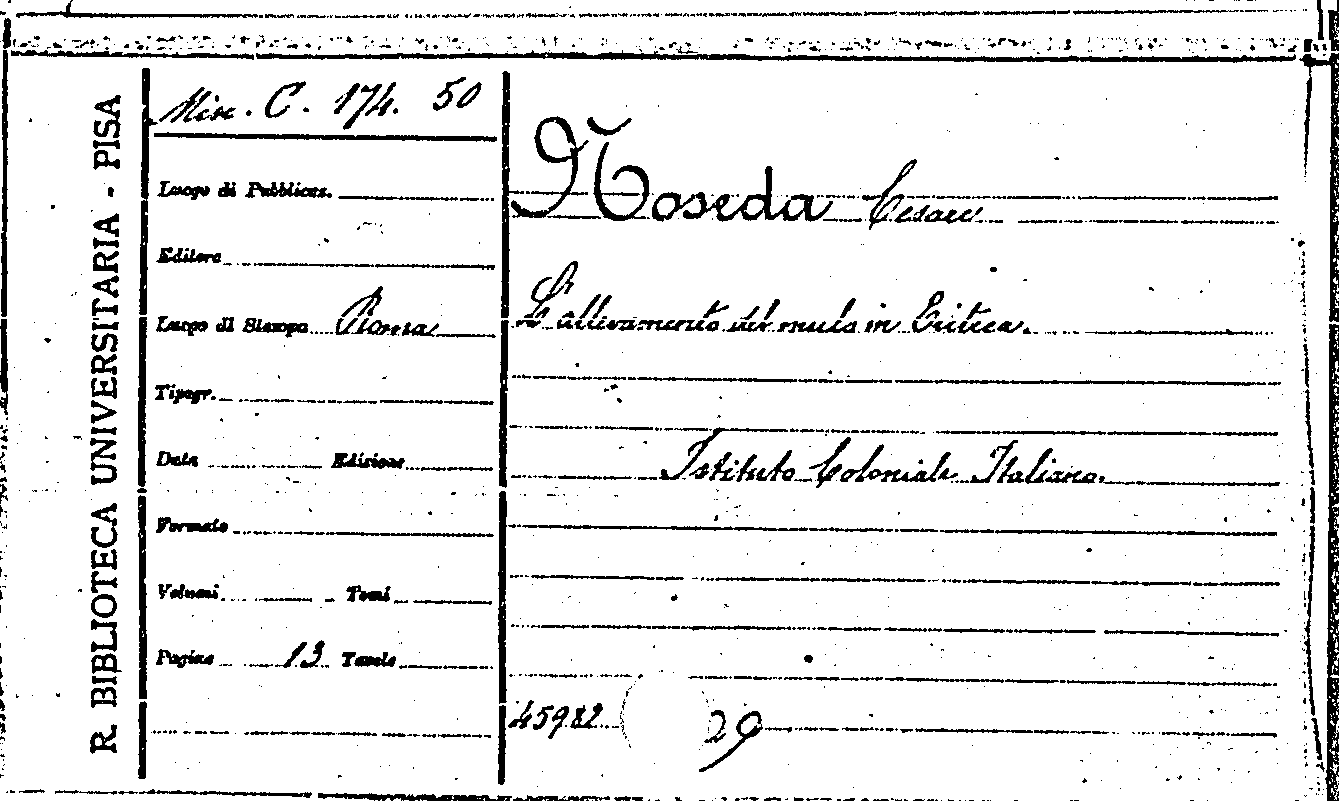 R. BIBLIOTECA UNIVERSITARIA - PISA
Misc. C. 174. 50
Luogo di Pubblicaz.
Editore
Luogo di Stampa Roma
Tipogr.
Data Edizione
Formato
Volumi Tomi
Pagine 13 Tavole
Noseda Cesare
L'allevamento del mulo in Eritrea.
Istituto Coloniale Italiano.
45982 29